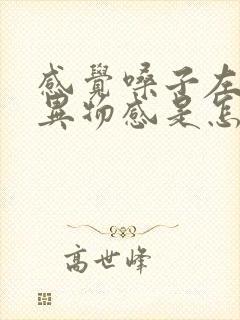 感覺嗓子左
異物感是怎
高世峰